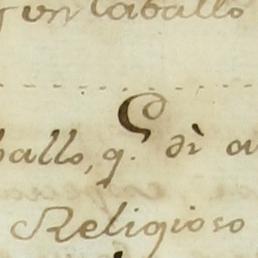 un Caballo
ballo, q.^ dì a
Religioso